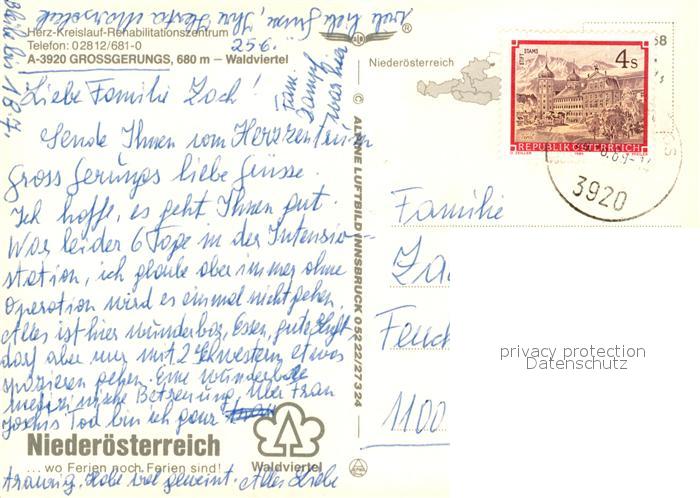 Herz-Kreislauf-Rehabilitationszentrum
Telefon: 02812/681-0
A-3920 GROSSGERUNGS, 680 m – Waldviertel
25.6.
Liebe Familie Zach!
Sende Ihnen vom Herzzentrum
Gross Gerungs liebe Grüsse.
Ich hoffe, es geht Ihnen gut.
War leider 6 Tage in der Intensiv-
station, ich glaube aber immer ohne
Operation wird es einmal nicht gehen.
Alles ist hier wunderbar, Essen, gute Luft,
darf aber nur mit 2 Schwestern etwas
spazieren gehen. Eine wunderbare
medizinische Betreuung. Über Frau
Tod bin ich ganz
traurig. Habe viel geweint. Alles Liebe
bleibe bis 18.7.
und liebe Grüsse, Ihre
Fam.
war hier
Niederösterreich
... wo Ferien noch Ferien sind!
Waldviertel
© ALPINE LUFTBILD INNSBRUCK 05222/27324
Niederösterreich
STIFT STAMS
4 S
REPUBLIK ÖSTERREICH
3920
Familie
Za
1100
privacy protection
Datenschutz